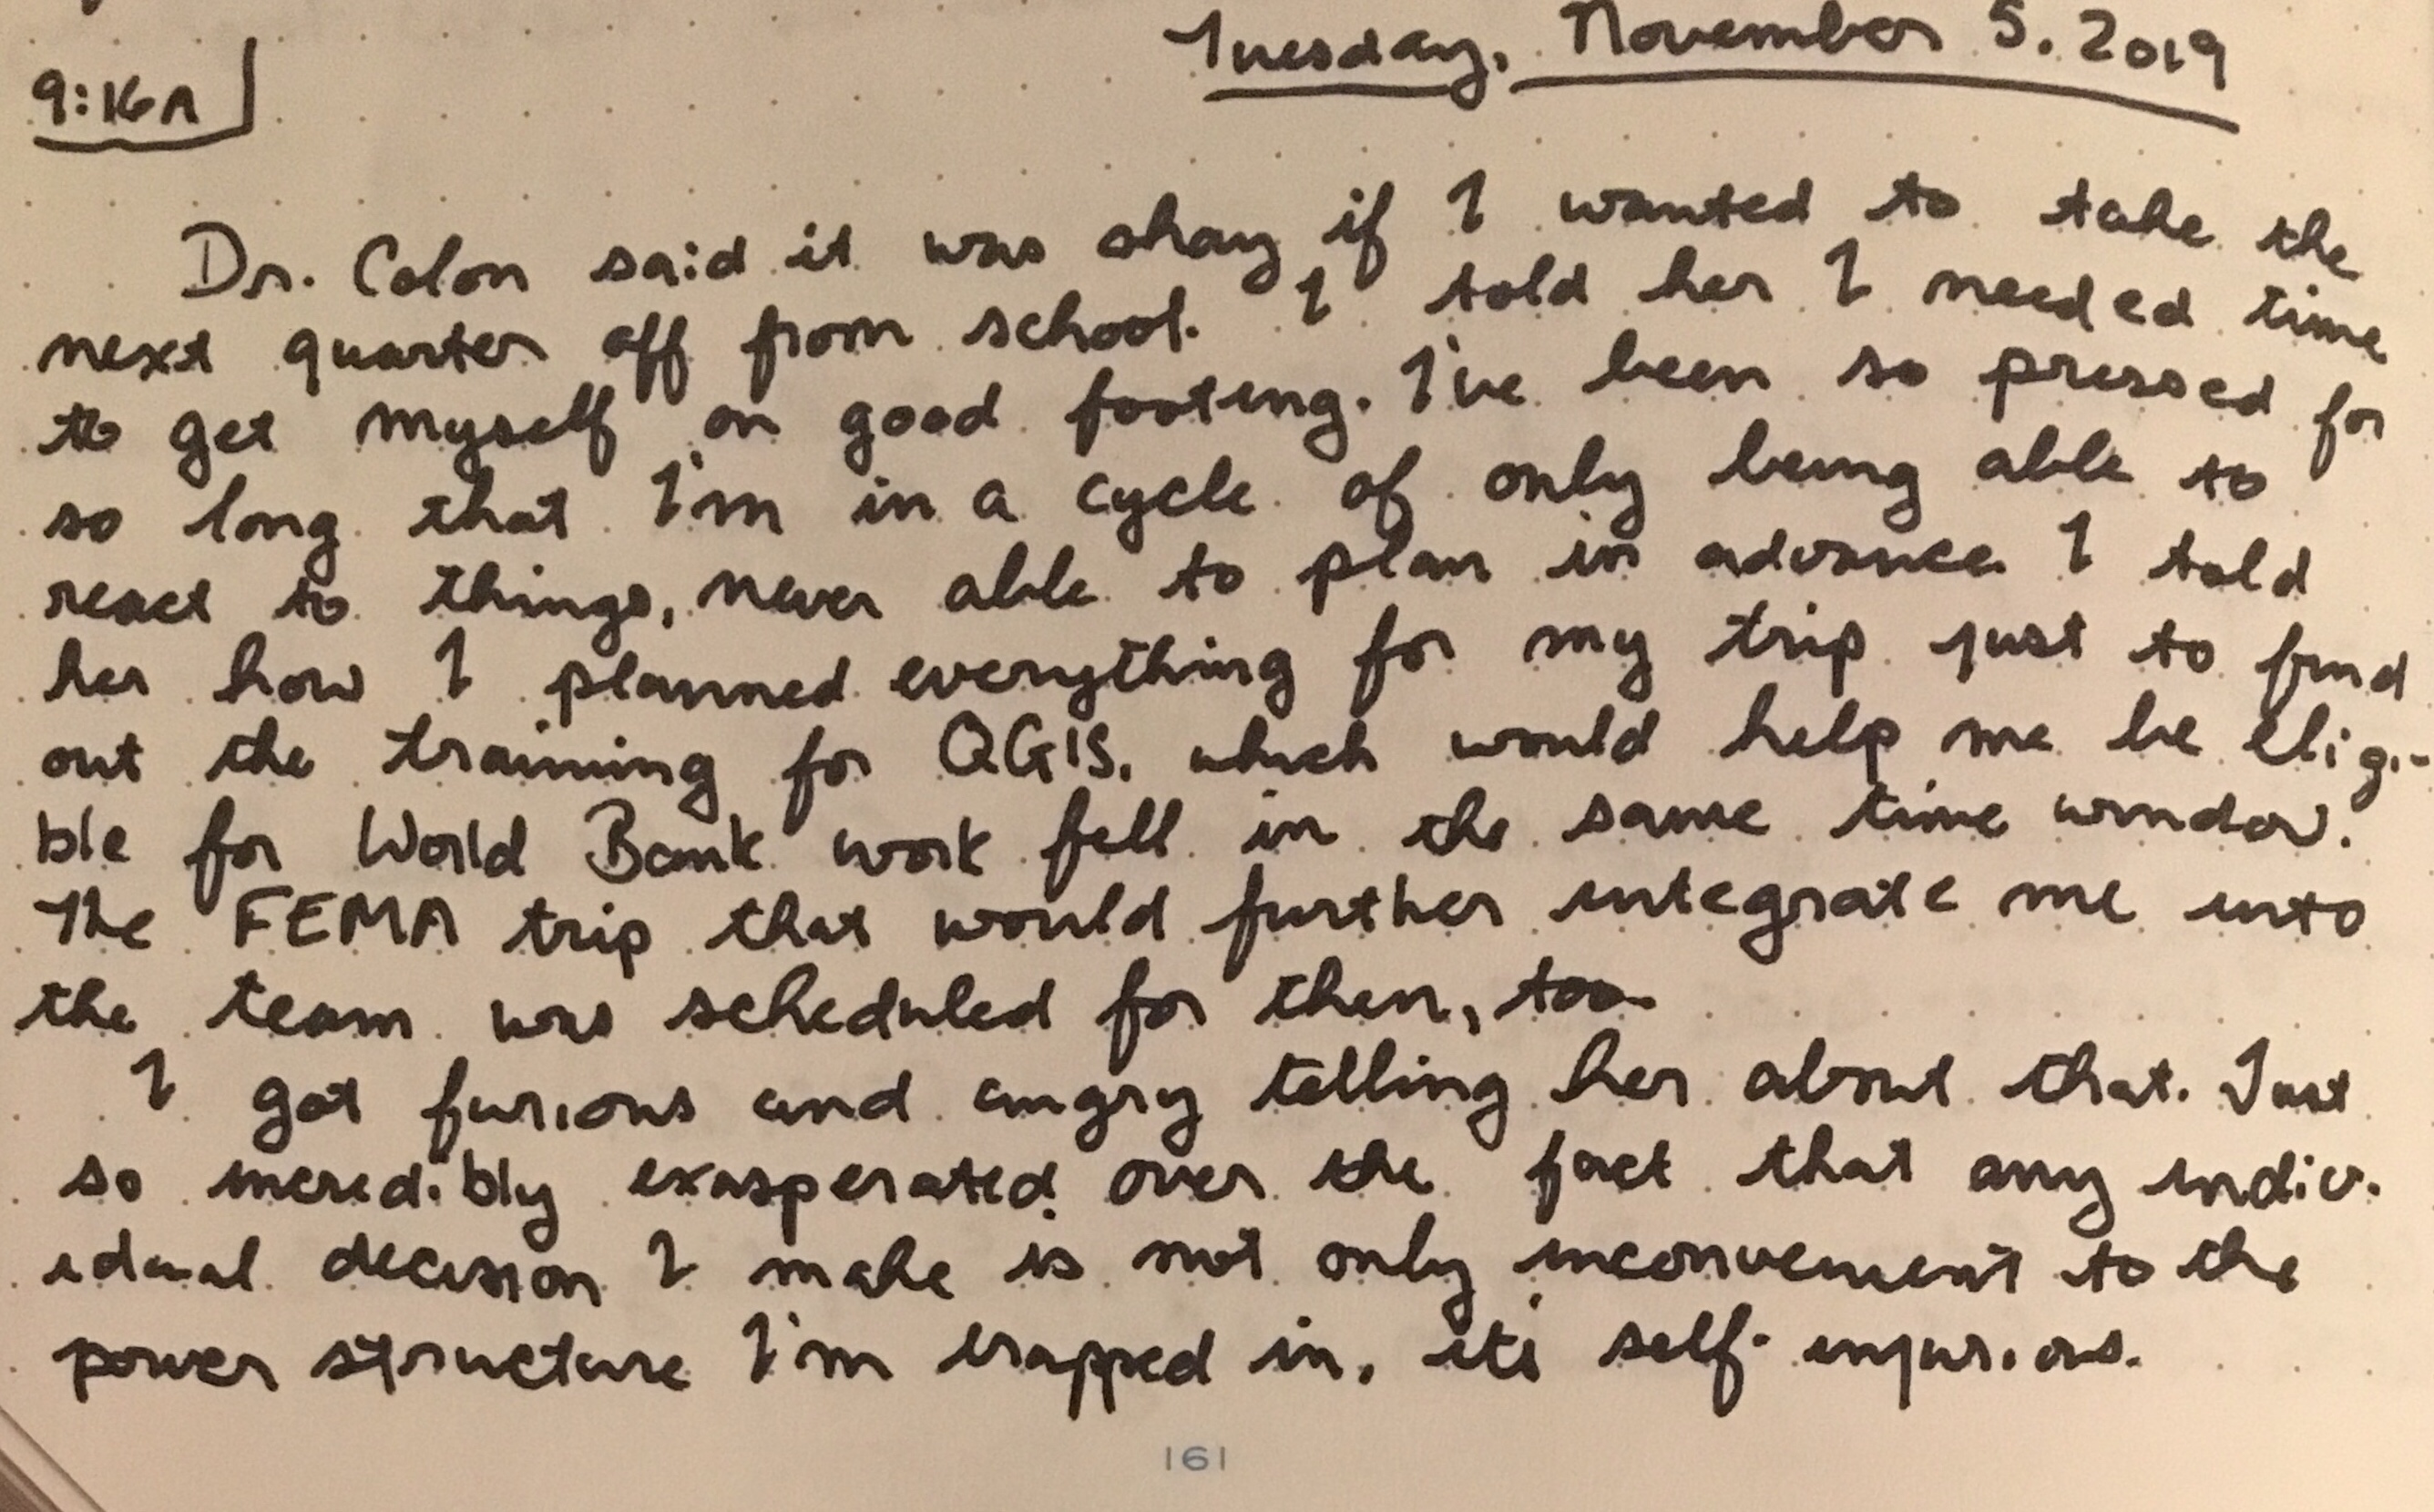 Tuesday, November 5, 2019
9:16A
Dr. Colon said it was okay if I wanted to take the
next quarter off from school. I told her I needed time
to get myself on good footing. I've been so pressed for
so long that I'm in a cycle of only being able to
react to things, never able to plan in advance. I told
her how I planned everything for my trip just to find
out the training for QGIS, which would help me be eligi-
ble for World Bank work fell in the same time window.
The FEMA trip that would further integrate me into
the team was scheduled for then, too.
I got furious and angry telling her about that. Just
so incredibly exasperated over the fact that any indiv-
idual decision I make is not only inconvenient to the
power structure I'm trapped in, it's self-injurious.
161